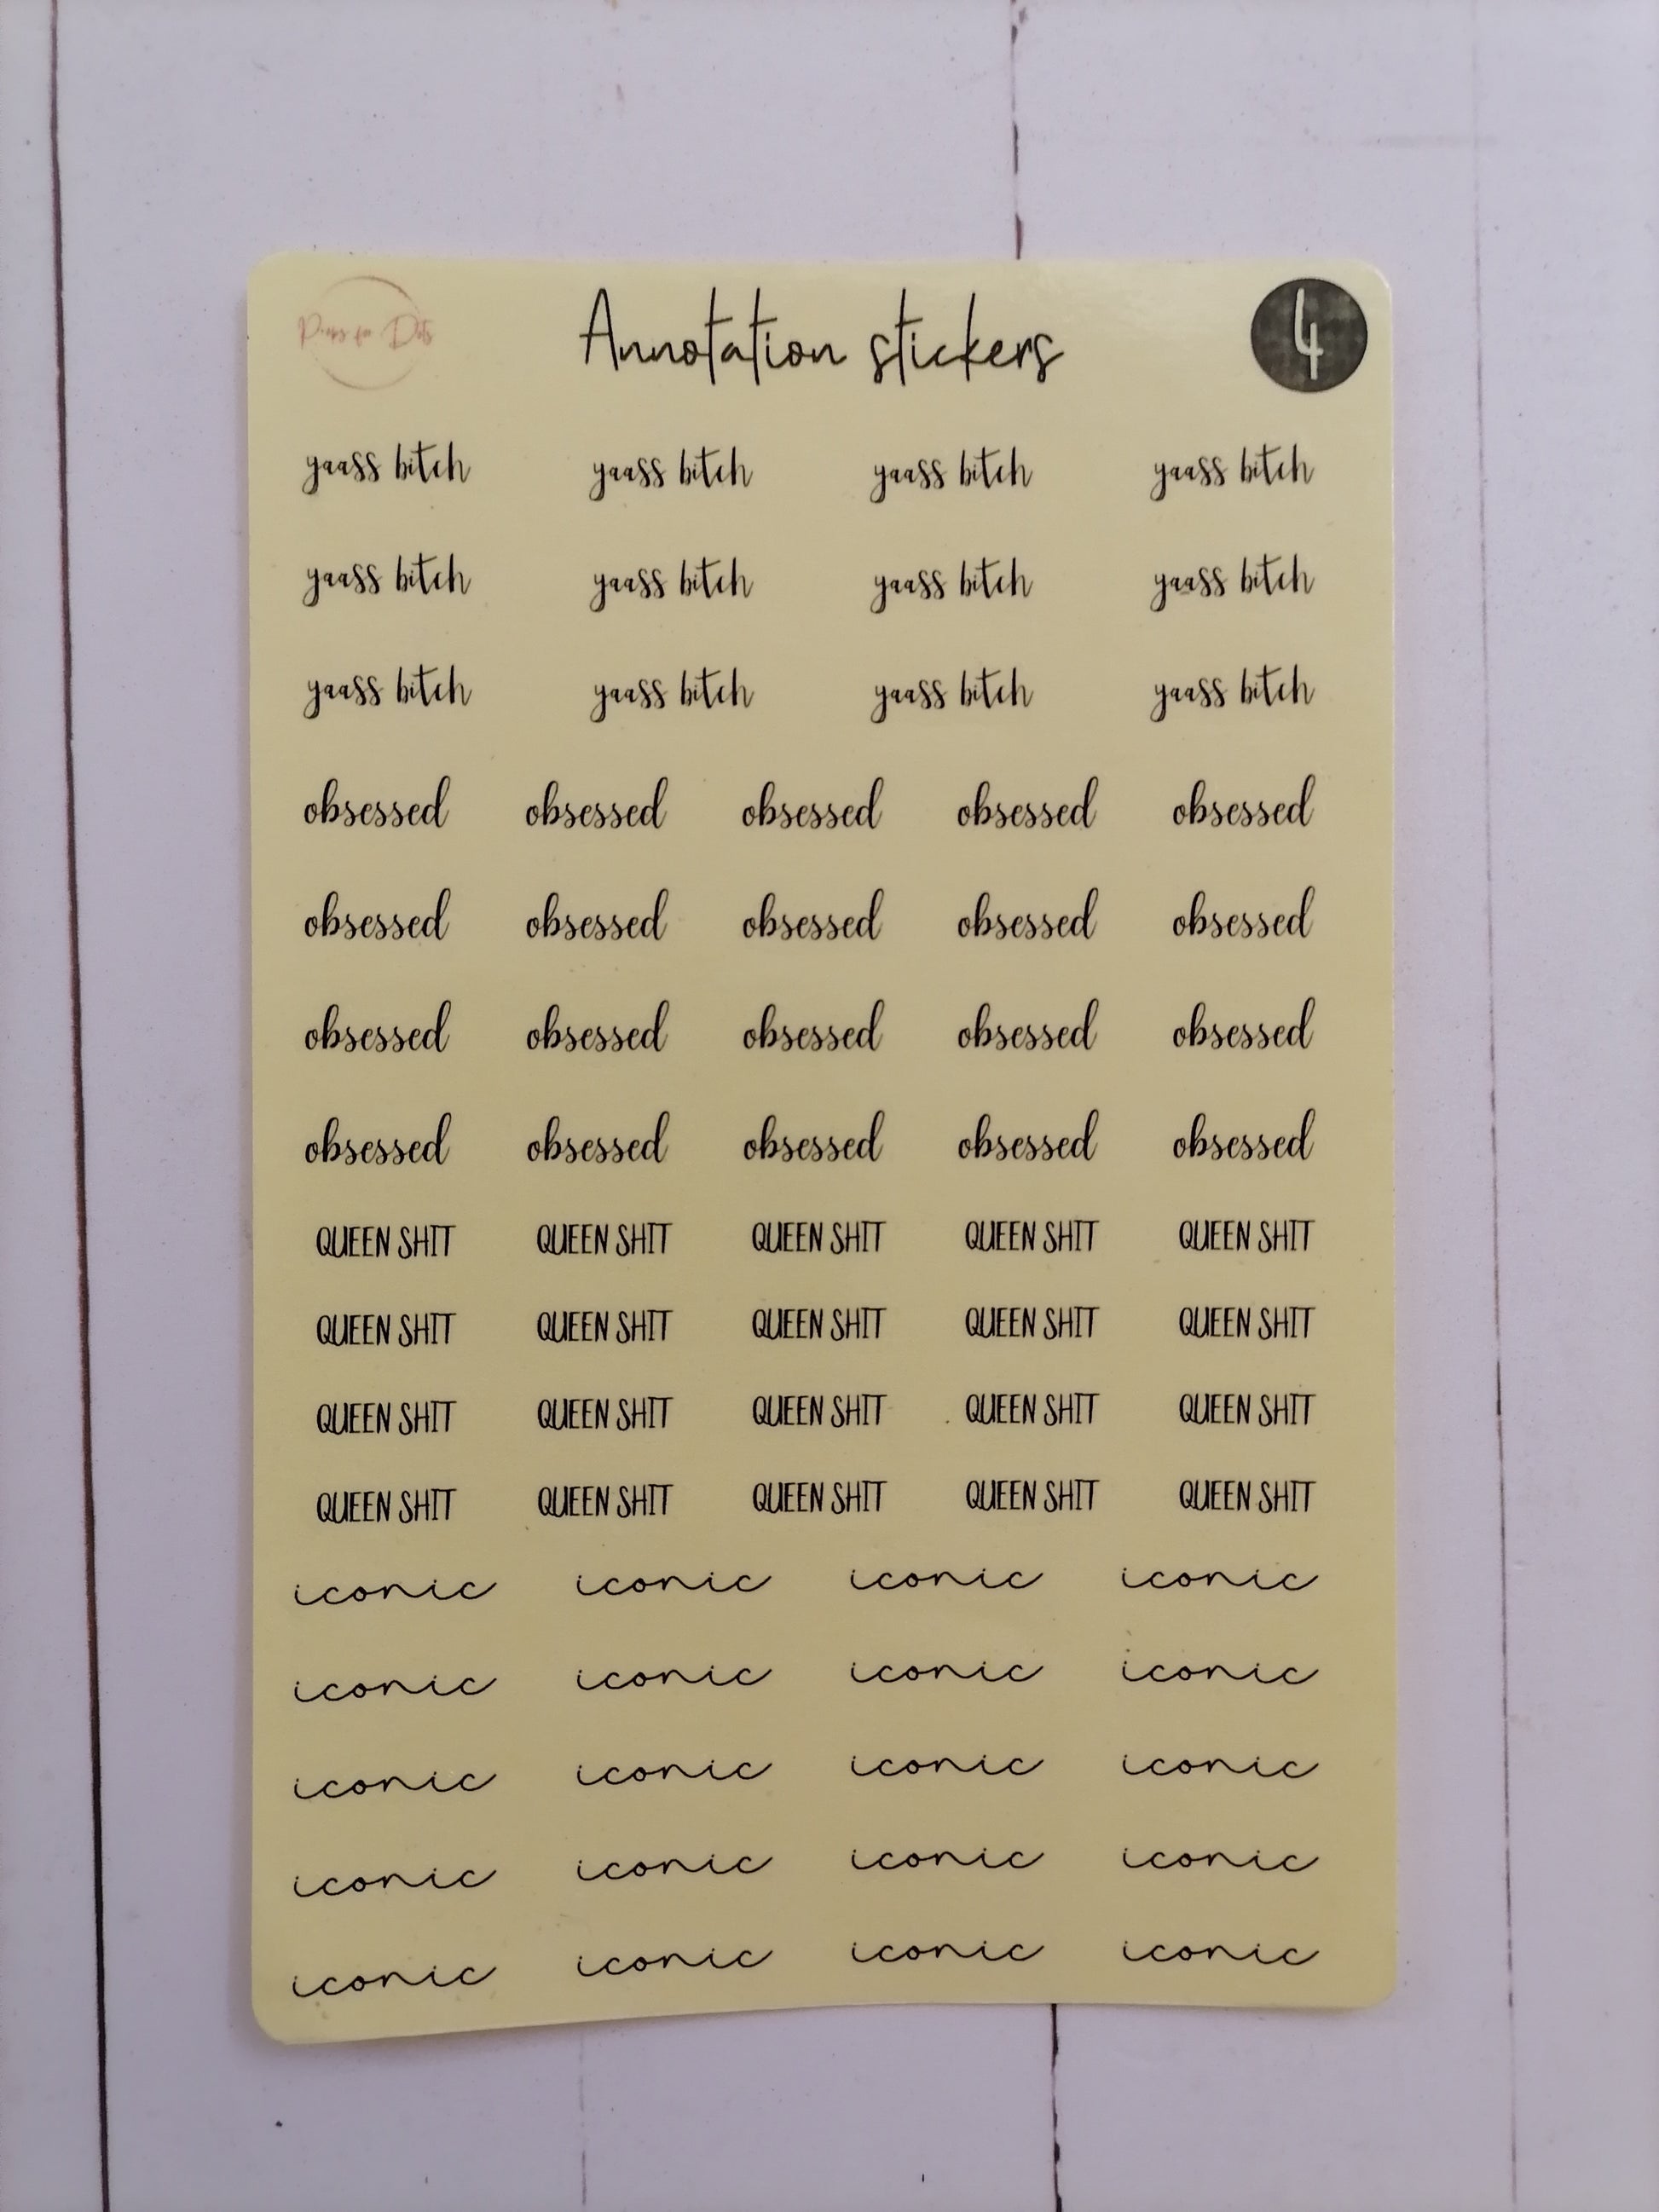 Annotation stickers 4
yaass bitch yaass bitch yaass bitch yaass bitch
yaass bitch yaass bitch yaass bitch yaass bitch
yaass bitch yaass bitch yaass bitch yaass bitch
obsessed obsessed obsessed obsessed obsessed
obsessed obsessed obsessed obsessed obsessed
obsessed obsessed obsessed obsessed obsessed
obsessed obsessed obsessed obsessed obsessed
QUEEN SHIT QUEEN SHIT QUEEN SHIT QUEEN SHIT QUEEN SHIT
QUEEN SHIT QUEEN SHIT QUEEN SHIT QUEEN SHIT QUEEN SHIT
QUEEN SHIT QUEEN SHIT QUEEN SHIT QUEEN SHIT QUEEN SHIT
QUEEN SHIT QUEEN SHIT QUEEN SHIT QUEEN SHIT QUEEN SHIT
iconic iconic iconic iconic
iconic iconic iconic iconic
iconic iconic iconic iconic
iconic iconic iconic iconic
iconic iconic iconic iconic